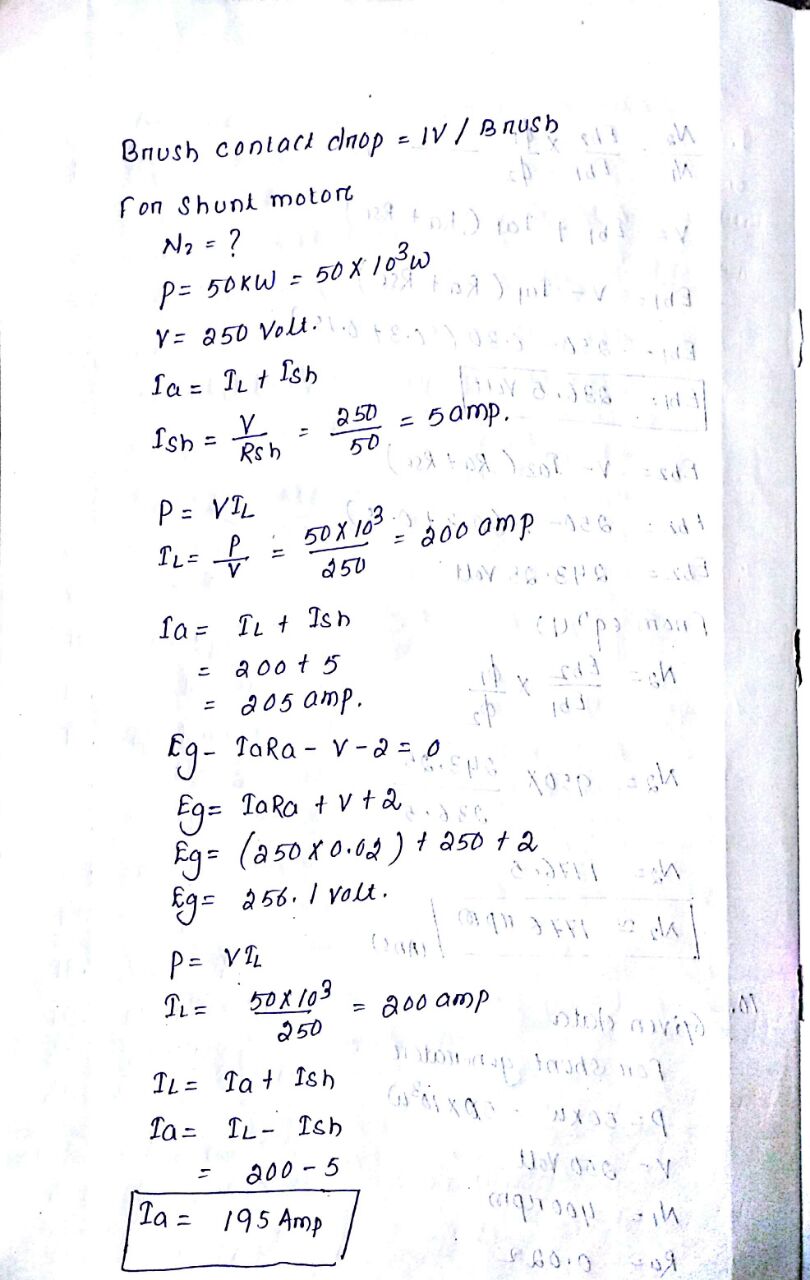 Brush contact drop = 1V / Brush
For Shunt motor
N2 = ?
P = 50KW = 50 X 10³ W
V = 250 Volt.
Ia = IL + Ish
Ish = V/Rsh = 250/50 = 5 amp.
P = VIL
IL = P/V = 50 X 10³/250 = 200 amp
Ia = IL + Ish
= 200 + 5
= 205 amp.
Eg - IaRa - V - 2 = 0
Eg = IaRa + V + 2
Eg = (250 X 0.02) + 250 + 2
Eg = 256.1 Volt.
P = VIL
IL = 50 X 10³/250 = 200 amp
IL = Ia + Ish
Ia = IL - Ish
= 200 - 5
Ia = 195 Amp